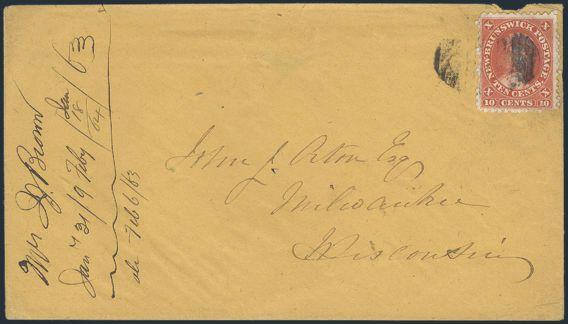 NEW-BRUNSWICK POSTAGE.
X X
TEN CENTS.
X X
10 CENTS 10
John J. Orton Esq
Milwaukee
Wisconsin
Mr D. Brown
Jany 31/9 Feby Jan 18/64 / 63
Feb 6/63